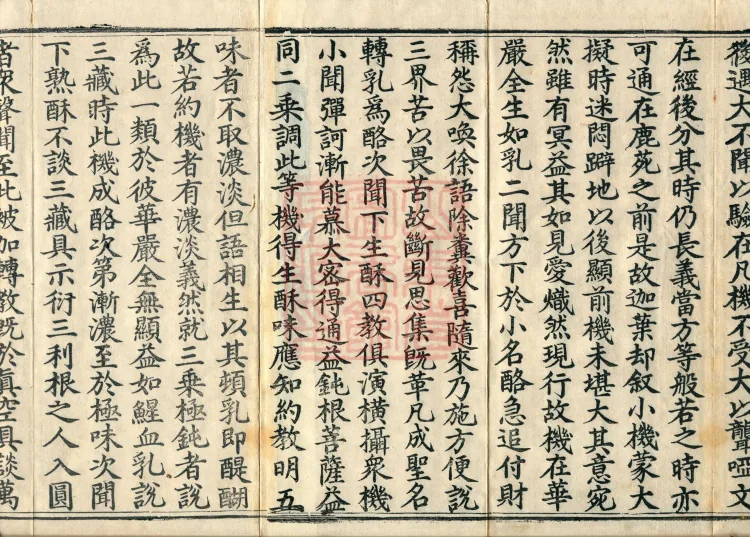 後通大不聞以駭在凡機不受大以聾啞文
在經後分其時仍長義當方等般若之時亦
可通在鹿苑之前是故迦葉却叙小機蒙大
擬時迷悶躃地以後顯前機未堪大其意宛
然雖有冥益其如見愛熾然現行故機在華
嚴全生如乳二聞方下於小名酪急追付財
稱怨大喚徐語除糞歡喜隨來乃施方便說
三界苦以畏苦故斷見思集旣革凡成聖名
轉乳爲酪次聞下生酥四教俱演橫攝衆機
小聞彈訶漸能慕大密得通益鈍根菩薩益
同二乘調此等機得生酥味應知約教明五
味者不取濃淡但語相生以其頓乳即醍醐
故若約機者有濃淡義然就三乘極鈍者說
爲此一類於彼華嚴全無顯益如鯹血乳說
三藏時此機成酪次第漸濃至於極味次聞
下熟酥不談三藏具示衍三利根之人入圓
者衆聲聞至此被加轉教旣於眞空具談萬